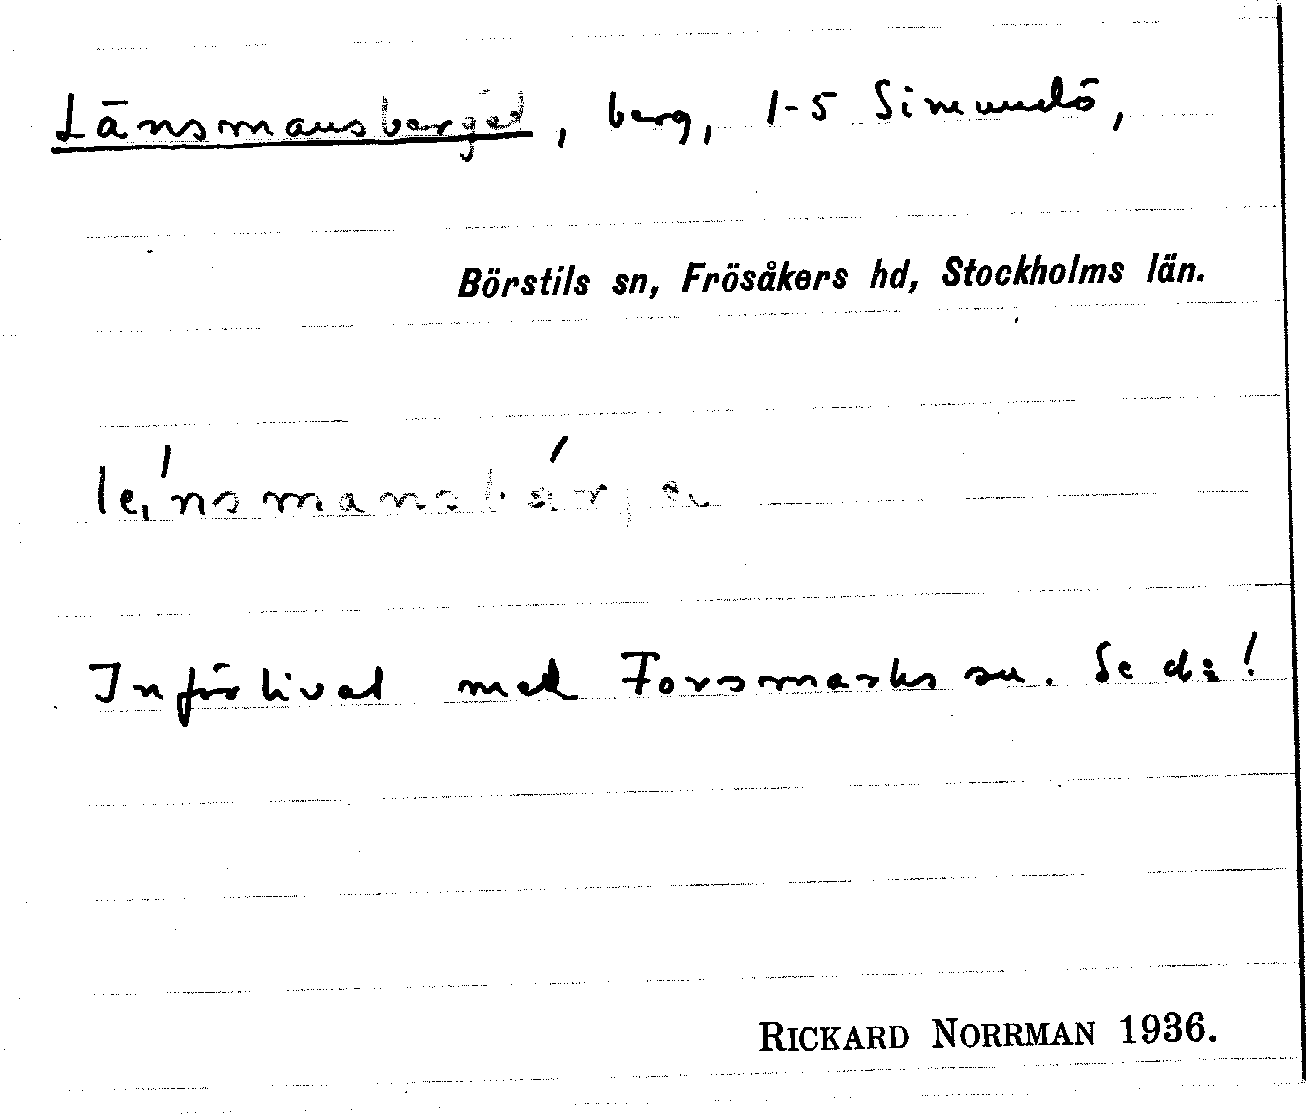 Länsmansberget, berg, 1-5 Simundö,
Börstils sn, Frösåkers hd, Stockholms län.
Införlivat med Forsmarks sn. Se d:o!
RICKARD NORRMAN 1936.